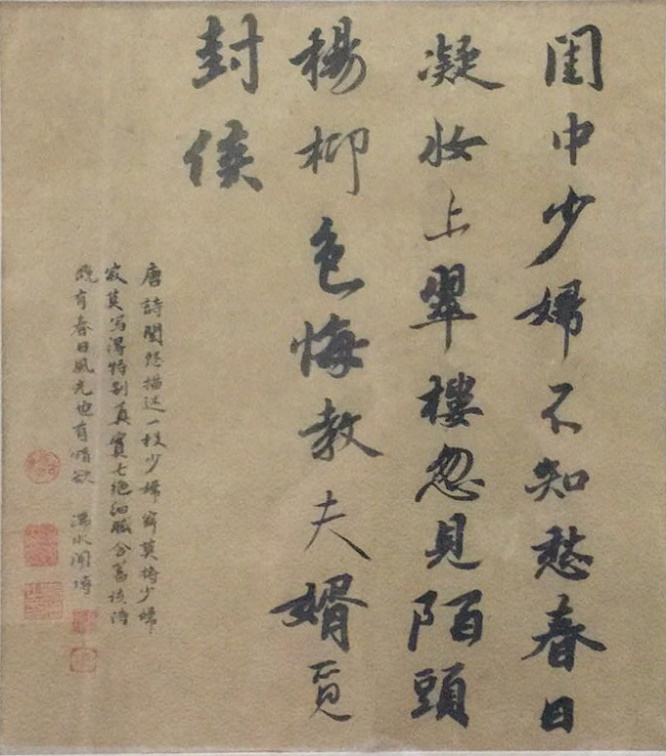 閨中少婦不知愁春日
凝妆上翠樓忽見陌頭
楊柳色悔教夫婿覓
封侯
唐詩閨怨描述一少婦寂莫将少婦
寂莫写得特别真實七绝細膩含蓄该诗
既有春日風光也有情欲 水